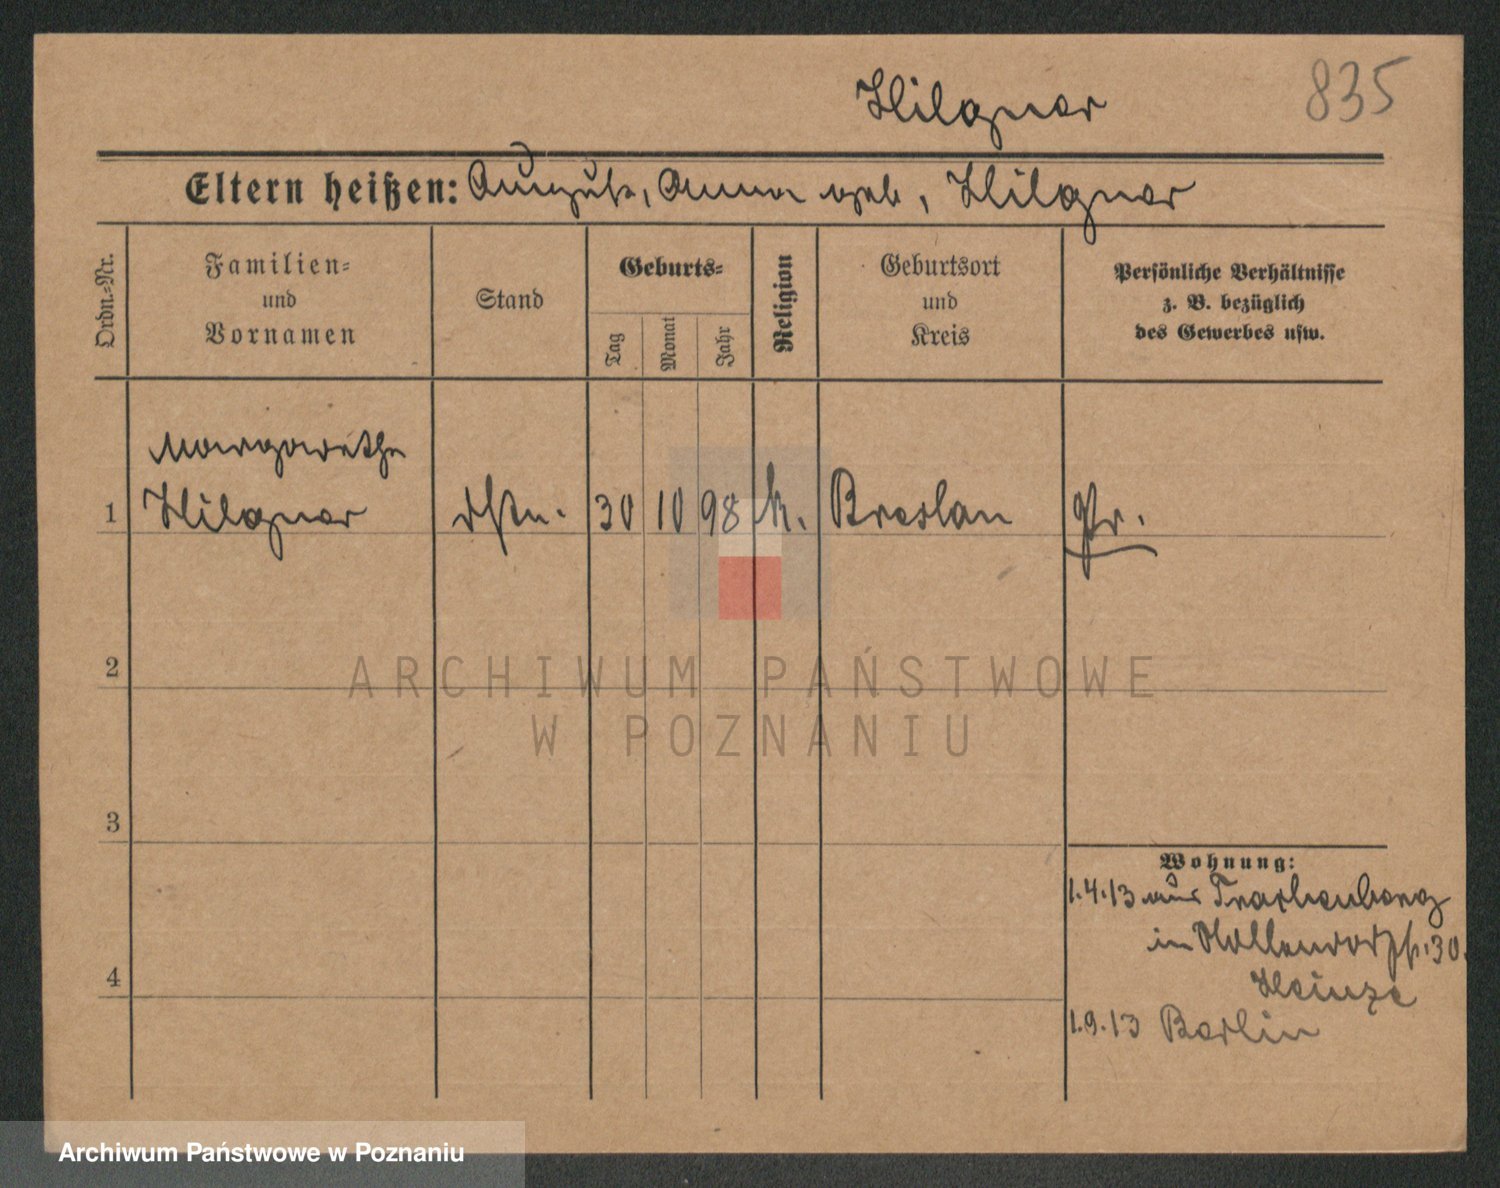 835
Hilgner
Eltern heißen: August, Anna geb. Hilgner
Ordn.-Nr.
Familien-
und
Vornamen
Stand
Geburts-
Tag
Monat
Jahr
Religion
Geburtsort
und
Kreis
Persönliche Verhältnisse
z. B. bezüglich
des Gewerbes usw.
Margarethe
1 Hilgner 30 10 98 k. Breslau Pr.
2
3
4
Wohnung:
1.4.13 aus Trachenberg
in 30.
Heinze
1.9.13 Berlin
ARCHIWUM PAŃSTWOWE
W POZNANIU
Archiwum Państwowe w Poznaniu